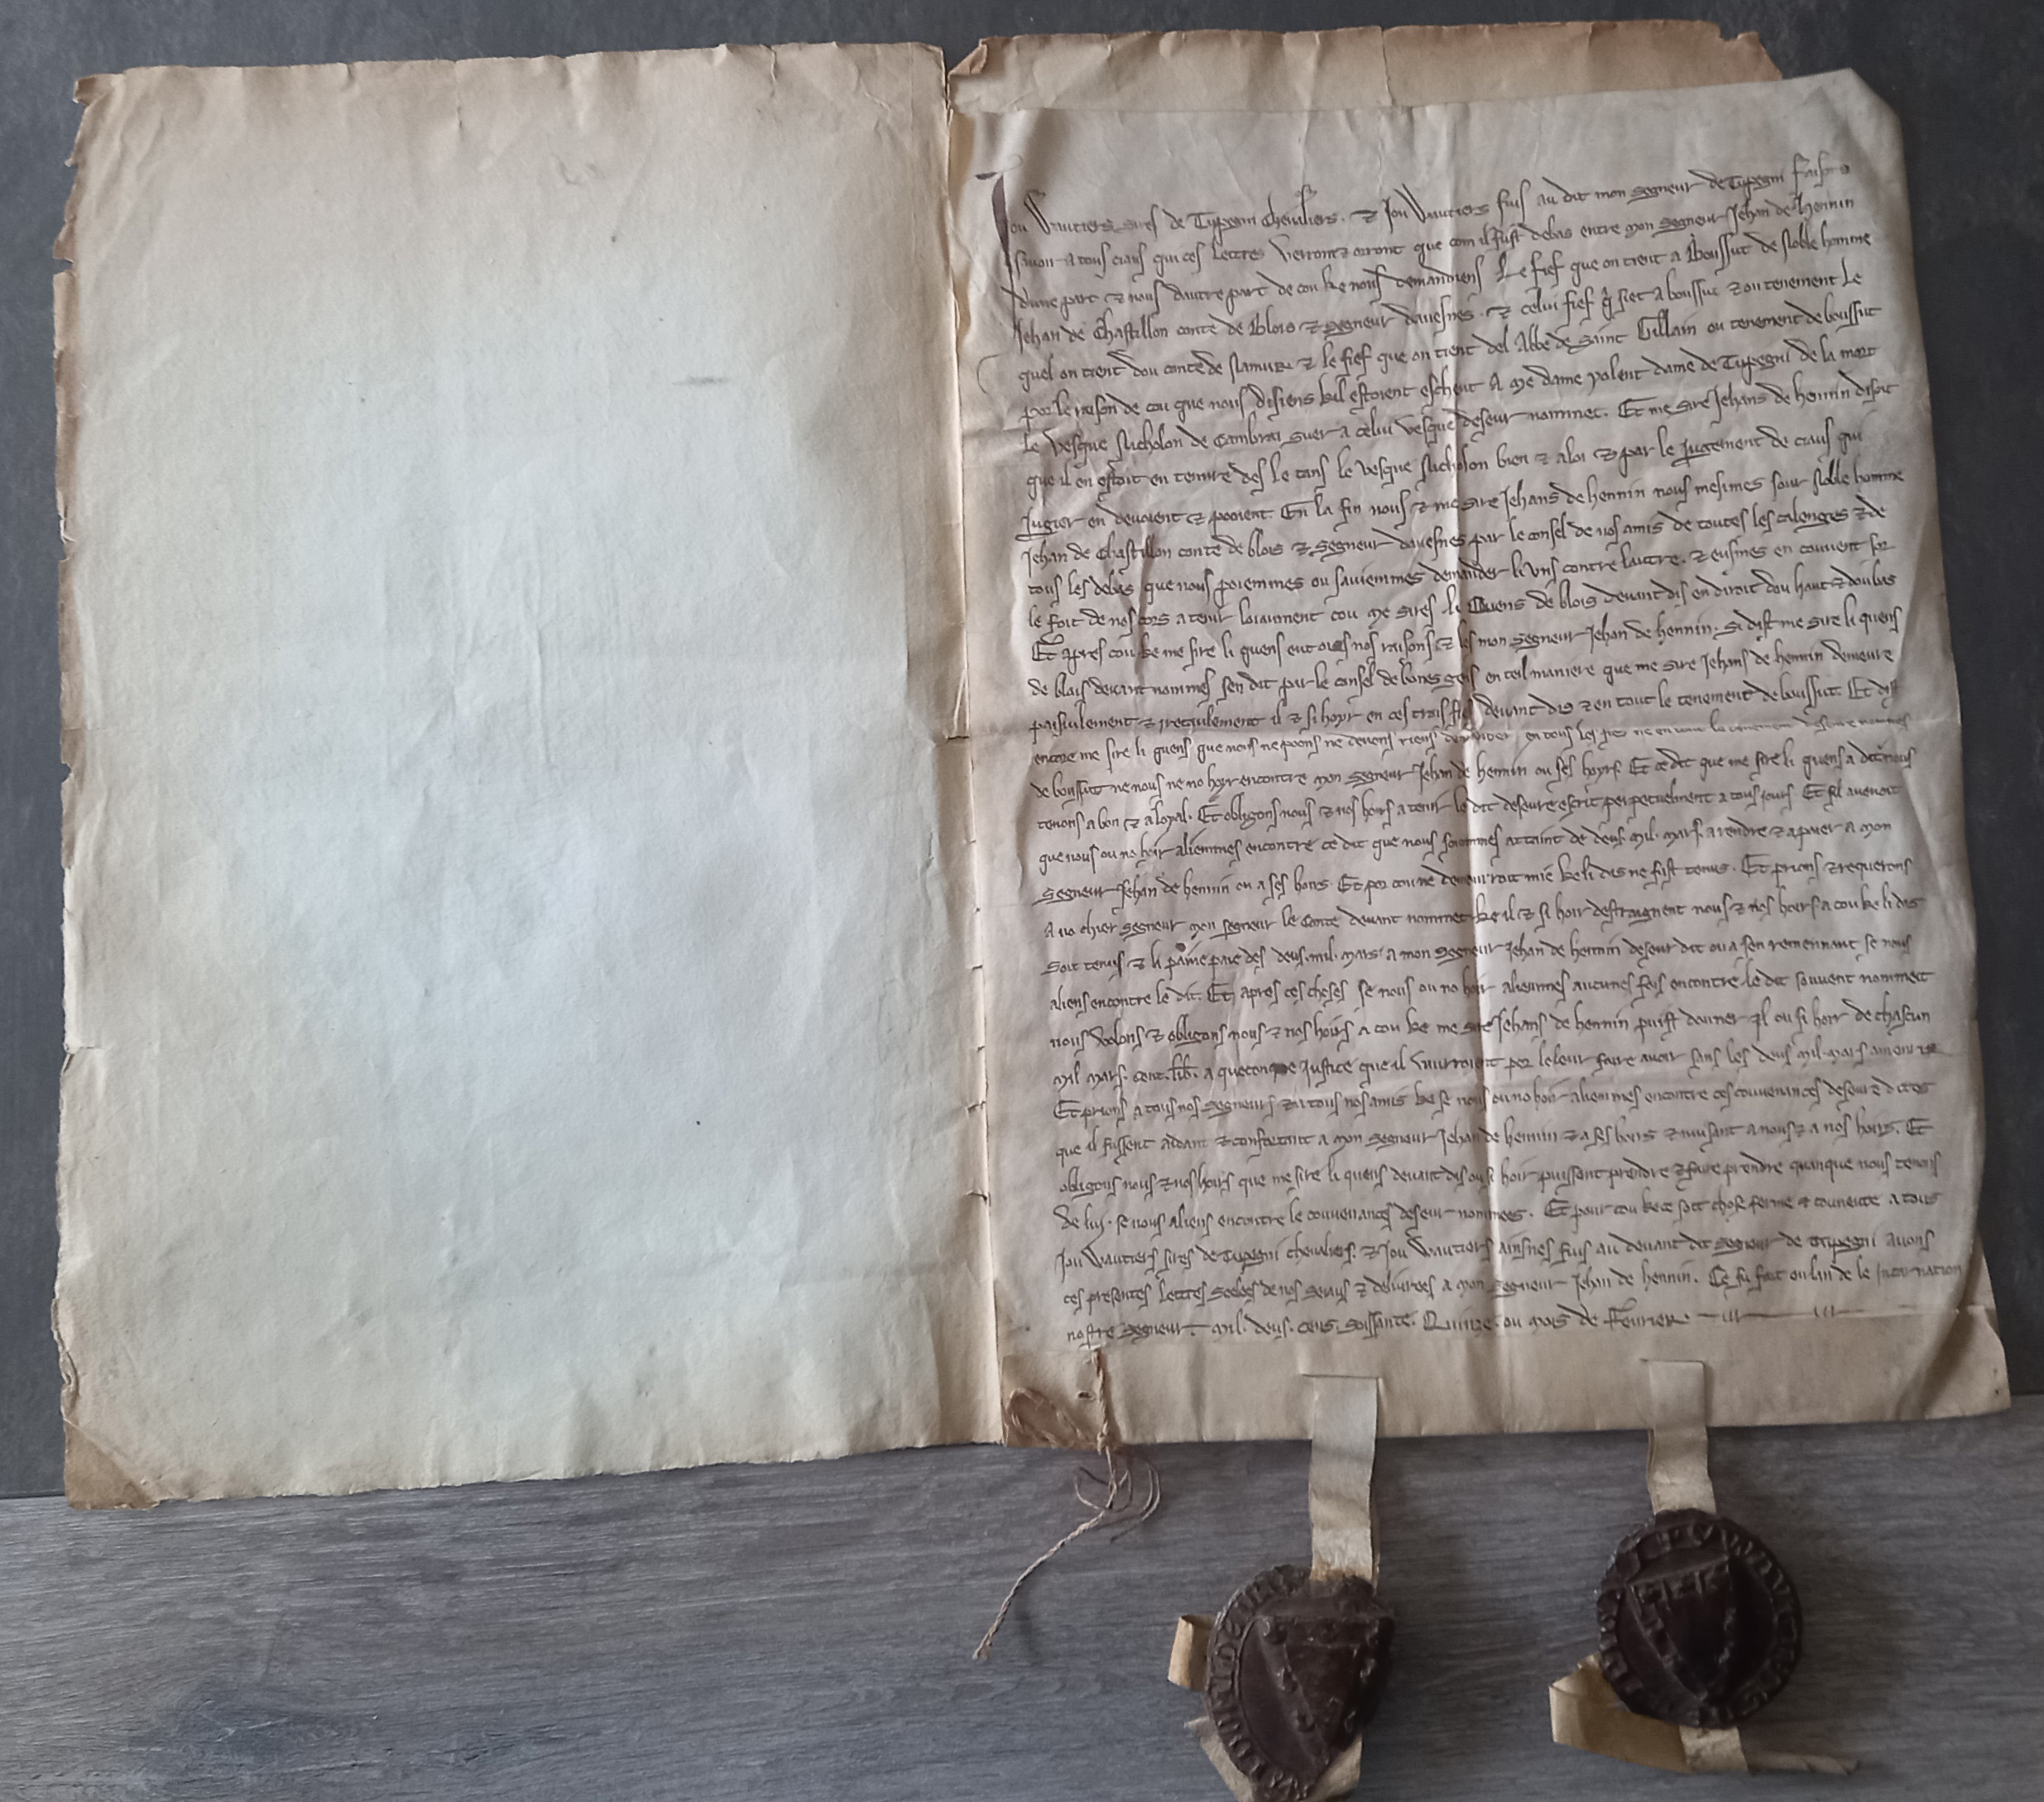 Jou Wautiers sires de Tupegni chevaliers. & Jou Wautiers fius au dit mon segneur de Tupegni faisons
savoir a tous ciaus qui ces lettres verront & orront que com il fust debas entre mon segneur Jehan de Hennin
dune part & nous dautre part de cou ke nous demandiens le fief que on tient a Boussut de noble homme
Jehan de Chastillon conte de Blois & segneur davesnes. & celui fief qi siet a boussut & ou tenement le
quel on tient dou conte de Namur & le fief que on tient del Abbe de saint Gillain ou tenement de boussut
por le raison de cou que nous disiens kil estoient escheut a me dame yolent dame de Tupegni de la mort
le vesque Nicholon de Cambrai suer a celui vesque deseur nommet. Et me sire Jehans de hennin disoit
que il en estoit en tenure des le tans le vesque Nicholon bien & a loi & par le jugement de ciaus qui
jugier en devoient & pooient. En la fin nous & me sire Jehans de hennin nous mesimes sour noble homme
Jehan de Chastillon conte de blois & segneur davesnes par le consel de nos amis de toutes les calenges & de
tous les debas que nous poiemmes ou saviemmes demander li uns contre lautre. & eusmes en couvent sor
le foit de nos cors a tenir loiaument cou me sires li Cuens de blois devant dis en diroit dou haut & dou bas
Et apres cou ke me sire li quens eut oies nos raisons & les mon segneur Jehan de hennin. si dist me sire li quens
de blais devant nommes sen dit par le consel de bones gens en teil maniere que me sire Jehans de hennin demeure
paisiulement & il & si hoyr en ces trais fies devant dis & en tout le tenement de boussut. Et dist
encore me sire li quens que nous ne poons ne devens riens demander en tous les fies ne en tout le tenement deseure nommes
de boussut ne nous ne no hoyr encontre mon segneur Jehan de hennin ou ses hoyrs. Et ce dit que me sire li quens a dit nous
tenons a bon & a loyal. Et obligons nous & nos hoirs a tenir le dit deseure escrit perpetuelment a tous jours. Et sil avenoit
que nous ou no hoir aliemmes encontre ce dit que nous soiommes attaint de deus. mil. mars. a rendre & a paier a mon
segneur Jehan de hennin ou a ses hoirs. Et por cou ne demouroit mie ke li dis ne fust tenus. Et prions & requerons
a no chier segneur mon segneur le Conte devant nommet ke il & si hoir destraignent nous & nos hoirs a cou ke li dis
soit tenus & li paine paie des deus. mil. mars. a mon segneur Jehan de hennin deseur dit ou a sen remennant se nous
aliens encontre le dit. Et apres ces choses se nous ou no hoir aliemmes aucunes fois encontre le dit souvent nommeit
nous volons & obligons nous & nos hoirs a cou ke me sire Jehans de hennin puist donner il ou si hoir de chascun
mil mars. cent. lib. a queconque justice que il vourroient por le leur faire avoir sans les deus mil. mars amenrir
Et prions a tous nos segneurs & a tous nos amis ke se nous ou no hoir aliemmes encontre ces couvenances deseure dites
que il fussent aidant & confortant a mon segneur Jehan de hennin & a ses hoirs & nuisant a nous & a nos hoirs. Et
obligons nous & nos hoirs que me sire li quens devant dis ou si hoir puissent prendre & faire prendre quanque nous tenons
de luy. se nous aliens encontre le couvenances deseur nommees. Et pour cou ke ce soit chose ferme & couneute a tous
Jou Wautiers sires de Tupegni chevaliers. & Jou Wautiers ainsnes fius au devant dit segneur de Tupegni avons
ces presentes lettres seelees de nos seaus & delivrees a mon segneur Jehan de hennin. Ce fu fait en lan de le Incarnation
nostre segneur. mil. deus. cens. soissante. Quinze. ou mois de Fevrier.